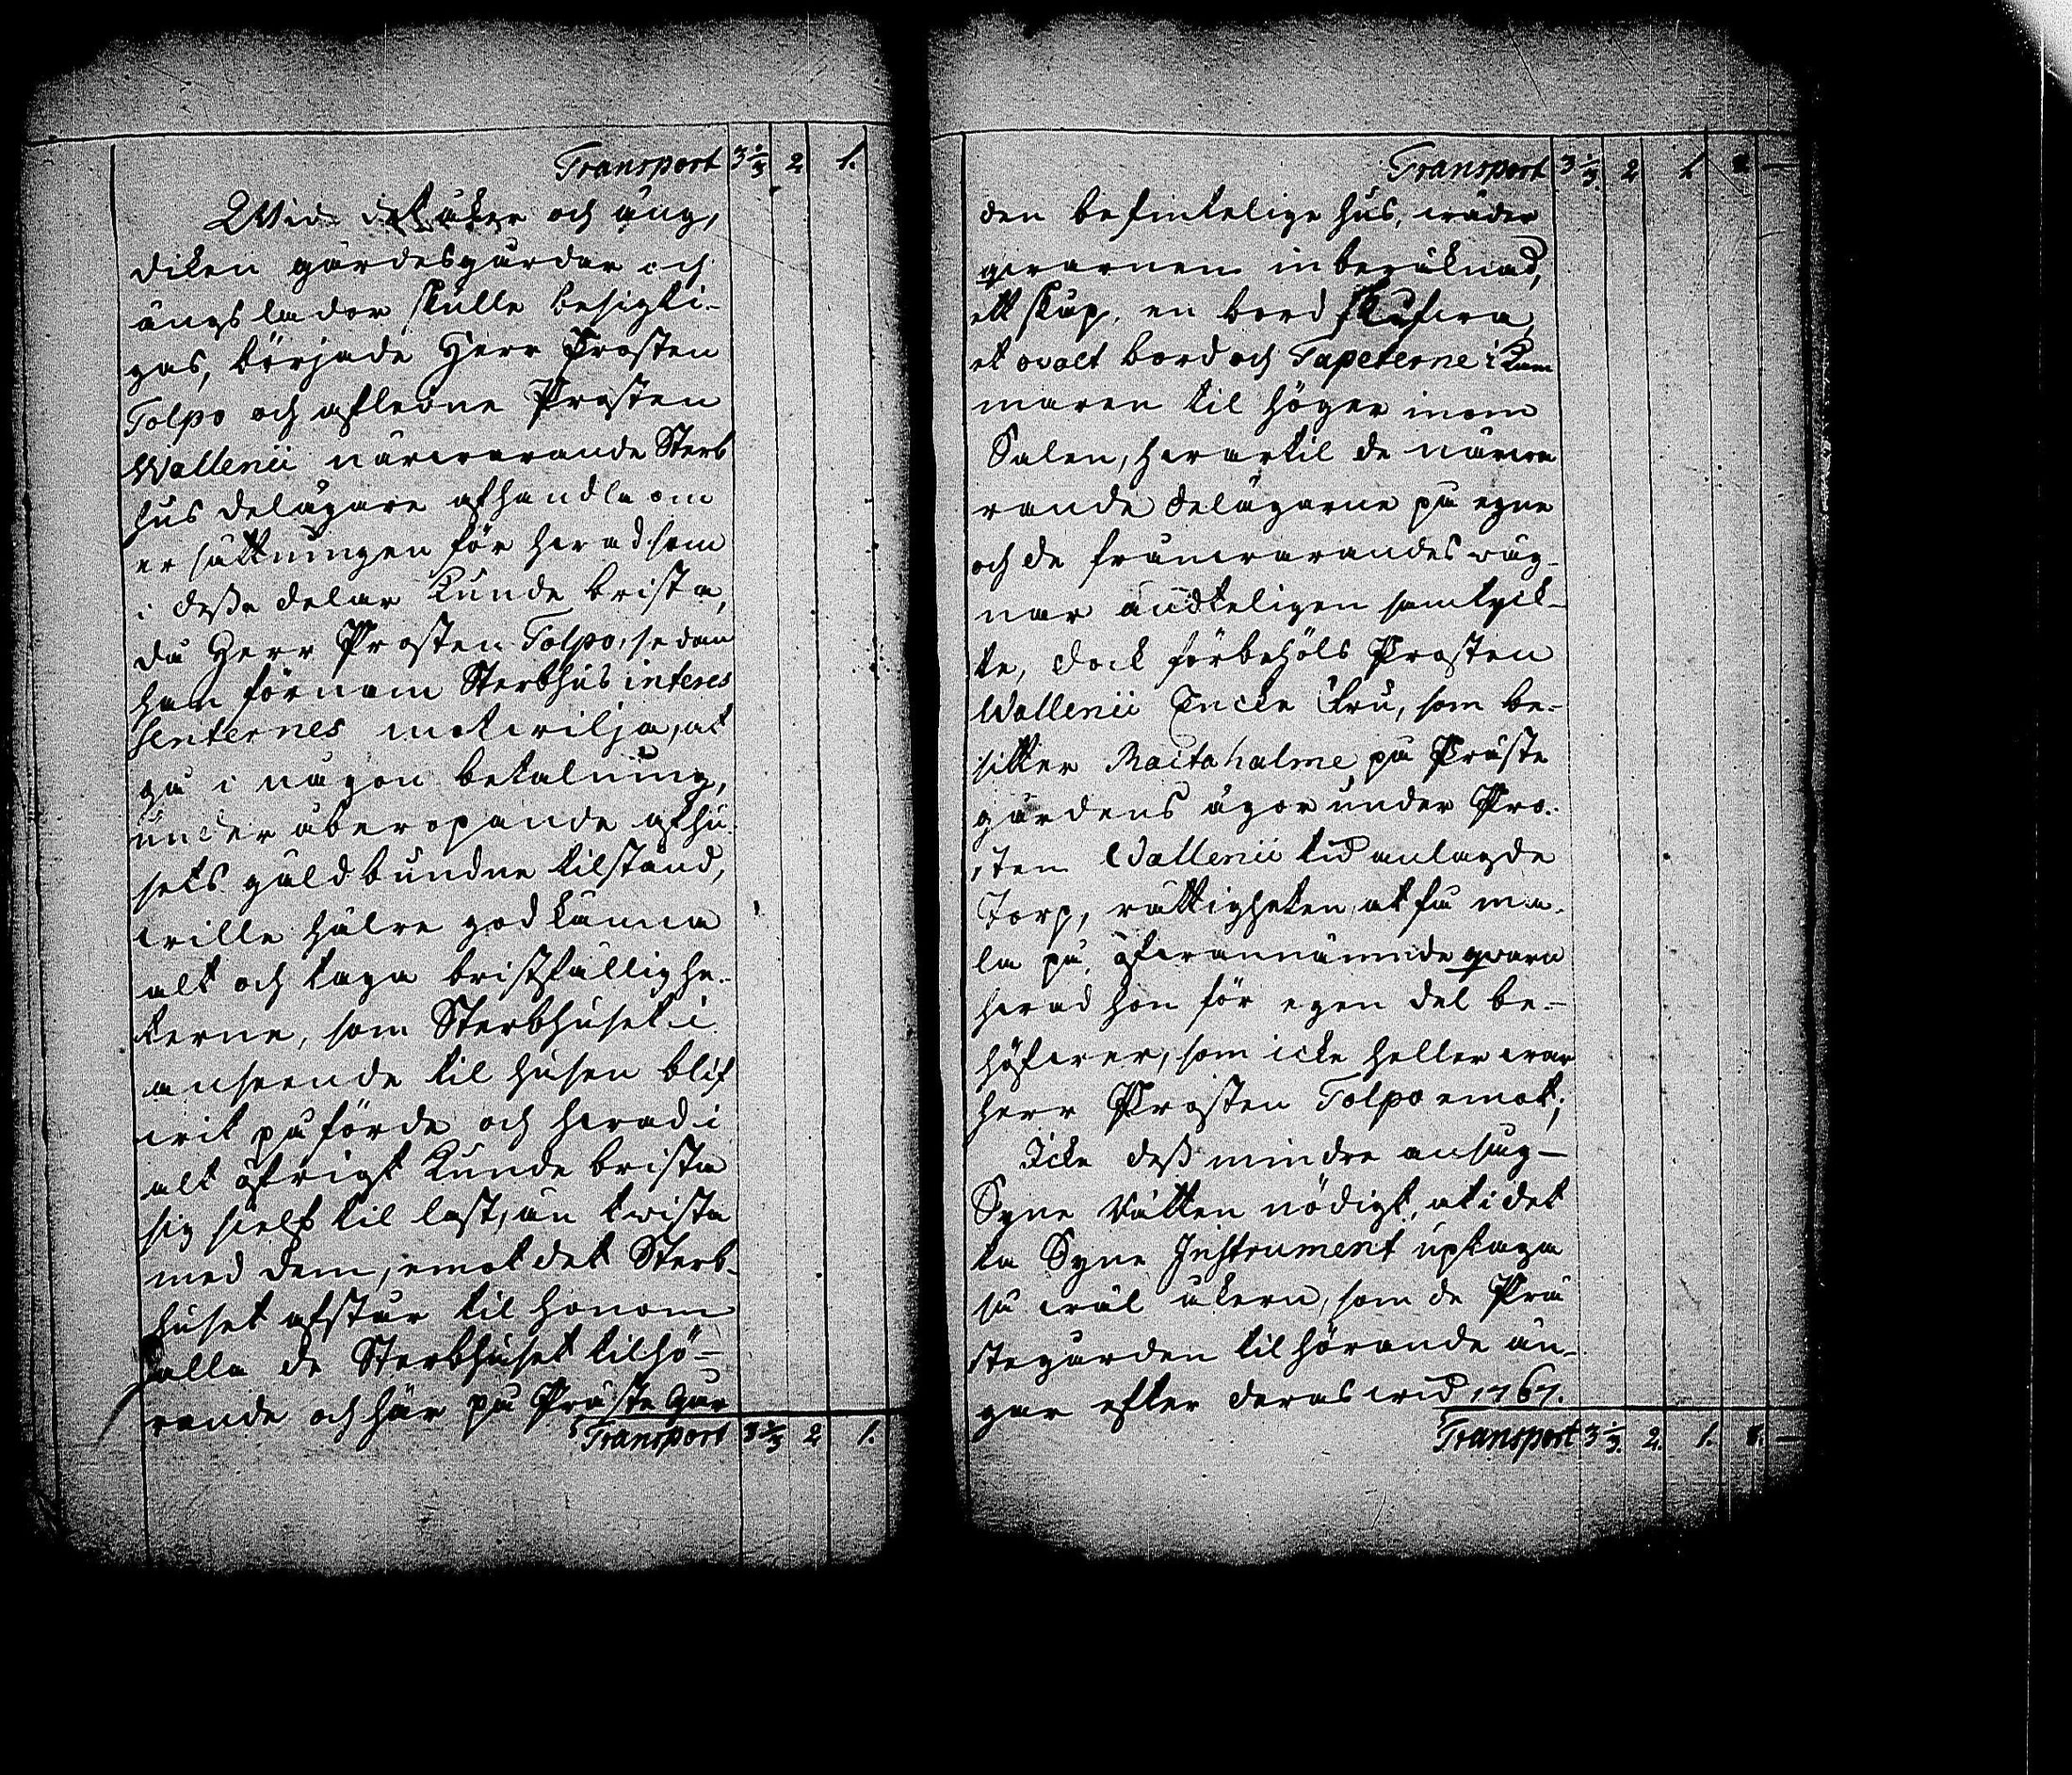 Transport 3 1/3 2 1.
Wid det åker och äng,
diken gärdesgårdar och
ängslador skulle besigti-
gas, började Herr Prosten
Tolpo och afledne Prosten
Wallenii närwarande Sterb
hus delägare afhandla om
ersättningen för hwad som
i dessa delar kunde brista,
då Herr Prosten Tolpo, sedan
han förnam Sterbhus interes
senternes motwilja, at
gå i någon betalning,
under åberopande af hu-
sets gäldbundne tilstånd,
wille hälre godkänna
alt och taga bristfällighe-
terne, som Sterbhuset i
anseende til husen blif
wit påförde och hwad i
alt öfrigt kunde brista
sig sielf til last, än twista
med dem, emot det Sterb-
huset afstår til honom
alla de Sterbhuset tilhö-
rande och här på Präste Går
Transport 3 1/3 2 1.
Transport 3 1/3. 2 1. 8. —
den befintelige hus, wäder
qwarnen inberäknad,
ett skåp, en bord
et ovalt bord och Tapeterne i Kam
maren til höger inom
Salen, hwartil de närwa
rande delägarne på egne
och de frånwarandes wäg-
nar ändteligen samtyck-
te, dock förbehöls Prosten
Wallenii Encke Fru, som be-
sitter Raitahalme, på Präste
gårdens ägor under Pro-
sten Wallenii tid anlagde
Torp, rättigheten at få ma-
la på, ofwannämnde qwarn
hwad hon för egen del be-
höfwer, som icke heller war
Herr Prosten Tolpo emot;
Icke dess mindre ansåg
Syne Rätten nödigt, at i det
ta Syne Instrument uptaga
så wäl åkern, som de Prä
stegården tilhörande än-
gar efter deras wid 1767.
Transport 3 1/3. 2. 1. 8. —